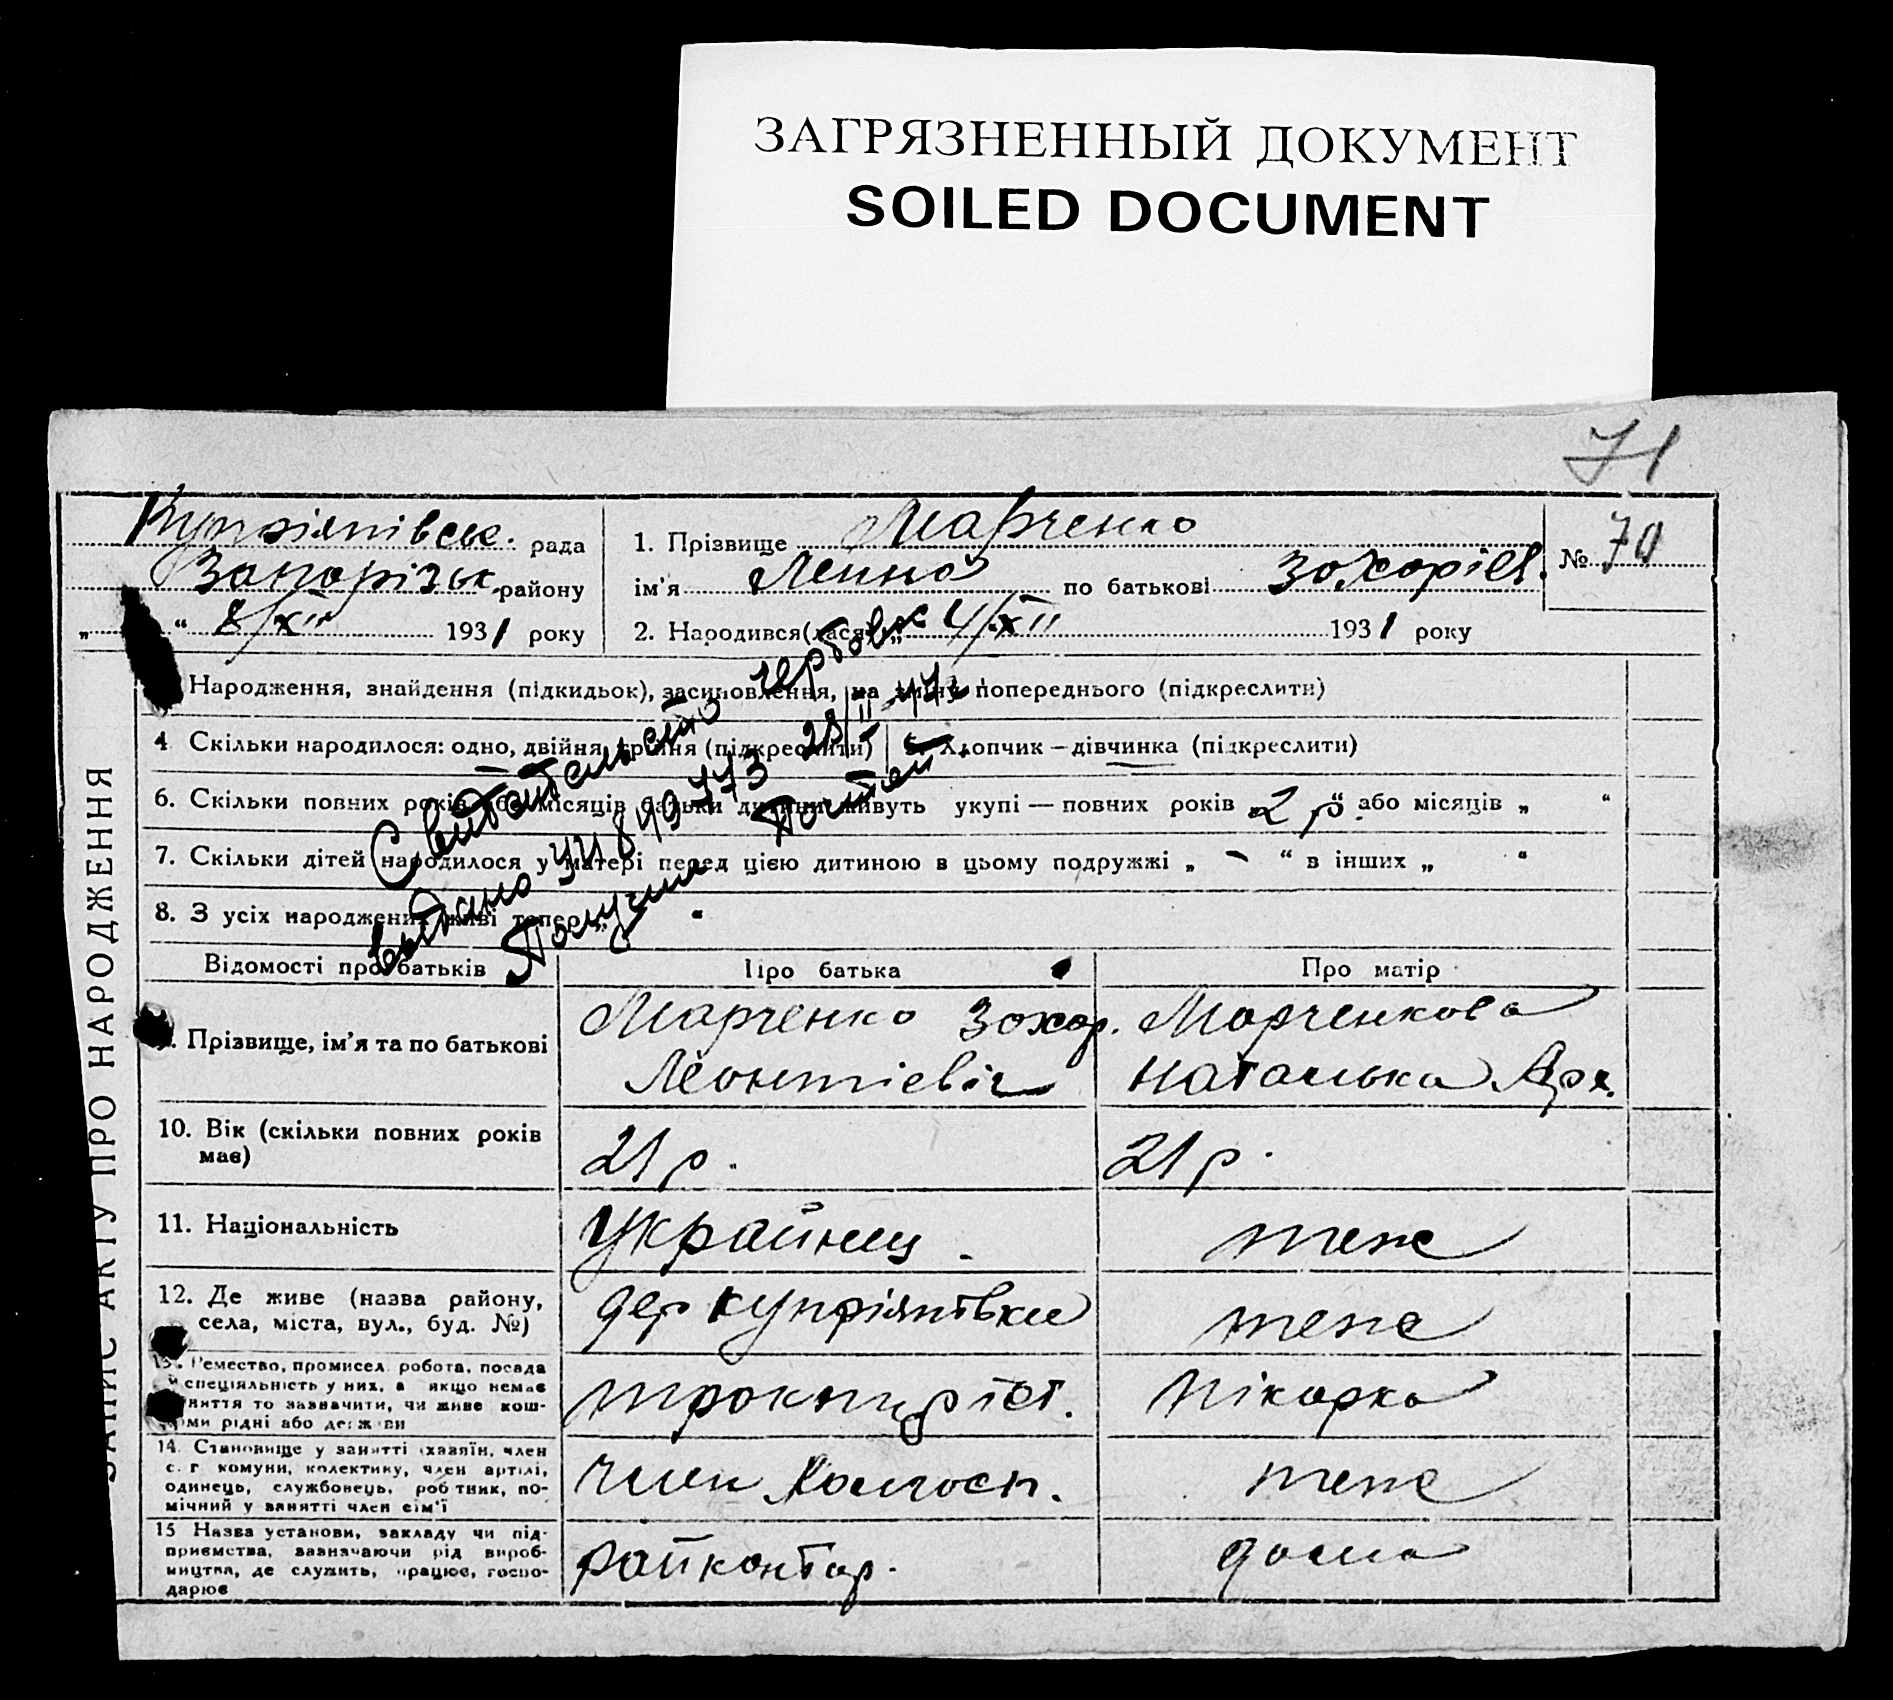 ЗАГРЯЗНЕННЫЙ ДОКУМЕНТ
SOILED DOCUMENT
71
Купріянівськ. рада
Запорізьк. району
„ “ 8/XII 1931 року
1. Прізвище Марченко
ім'я Ленна по батькові Зохоріев.
2. Народився(лася) „ 4/XII 1931 року
№ 70
Народження, знайдення (підкидьок), засиновлення, на зміну попереднього (підкреслити)
4 Скільки народилося: одно, двійня, тройня (підкреслити) 5. Хлопчик – дівчинка (підкреслити)
6. Скільки повних років або місяців батьки дитини живуть укупі — повних років „2 р.“ або місяців „ “
7. Скільки дітей народилося у матері перед цією дитиною в цьому подружжі „ – “ в інших „ “
8. З усіх народжених живі тепер „ “
Свидетельство гербовое
выдано УЧ 849773 28/II-47г.
Получил
ЗАПИС АКТУ ПРО НАРОДЖЕННЯ
Відомості про батьків Про батька Про матір
9. Прізвище, ім'я та по батькові
Марченко Зохар.
Леонтієвіч
Марченкова
Наталька Арх.
10. Вік (скільки повних років
має)
21 р.
21 р.
11. Національність
Українец
теже
12. Де живе (назва району,
села, міста, вул., буд. №)
дер Купріянівки
теже
13. Ремество, промисел, робота, посада
й спеціяльність у них, а якщо немає
заняття то зазначити, чи живе кош-
тами рідні або держави
тракторіст.
пікарка
14. Становище у занятті (хазяїн, член
с. г. комуни, колективу, член артілі,
одинець, службовець, робітник, по-
мічний у занятті член сім'ї
член колгосп.
теже
15 Назва установи, закладу чи під-
приємства, зазначаючи рід вироб-
ництва, де служить, працює, госпо-
дарює
райконтор.
дома